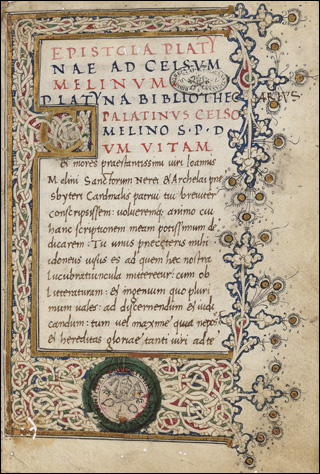 EPISTOLA PLATY
NAE AD CELSVM
MELINVM
PLATYNA BIBLIOTHECARIVS
PALATINVS CELSO
MELINO S·P·D
CVM VITAM
et mores praestantissimi viri Ioannis
Melini Sanctorum Nerei & Archelai pres
byteri Cardinalis patrui tui breviter
conscripsissem: volverem animo cui
hanc scriptionem meam potissimum de
dicarem: Tu unus praeceteris mihi
idoneus visus es ad quem hec nostra
lucubratiuncula mitteretur: cum ob
litteraturam: & ingenium quo pluri
mum vales: ad discernendum et iudi
candum: tum vel maxime quia nepos
et hereditas gloriae tanti viri ad te